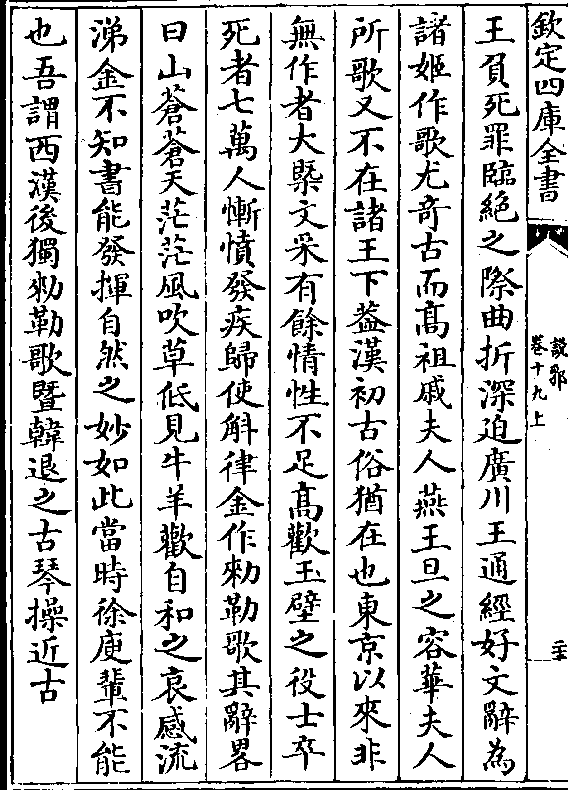 欽定四庫全書
說郛
卷十九上
二十
王負死罪臨絶之際曲折深迫廣川王通經好文辭為
諸姬作歌尤竒古而髙祖戚夫人燕王旦之容華夫人
所歌又不在諸王下葢漢初古俗猶在也東京以來非
無作者大槩文采有餘情性不足髙歡玉壁之役士卒
死者七萬人慚憤發疾歸使斛律金作勑勒歌其辭畧
曰山蒼蒼天茫茫風吹草低見牛羊歡自和之哀感流
涕金不知書能發揮自然之妙如此當時徐庾輩不能
也吾謂西漢後獨勑勒歌暨韓退之古琴操近古